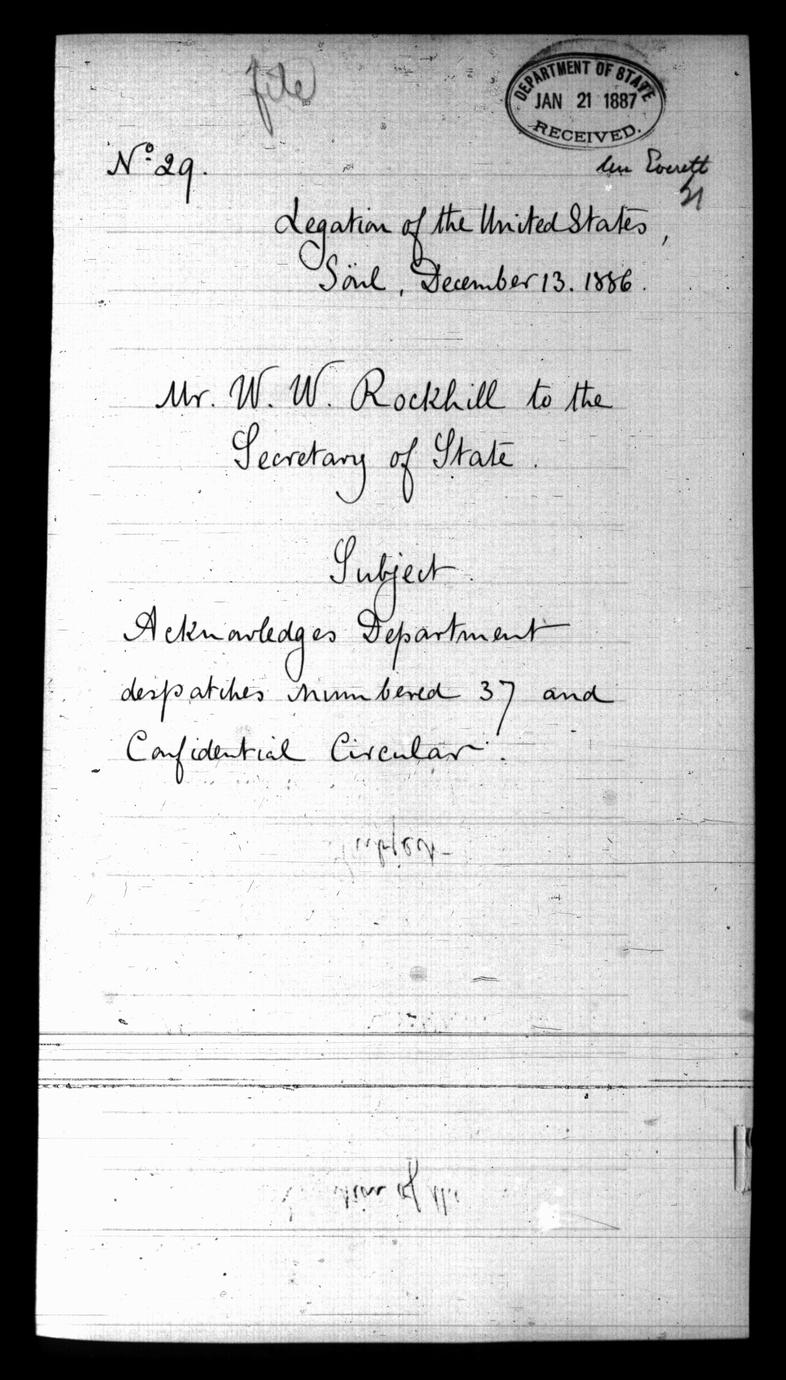 file
DEPARTMENT OF STATE
JAN 21 1887
RECEIVED.
Nº 29.
Everett
21
Legation of the United States,
Söul, December 13. 1886.
Mr. W. W. Rockhill to the
Secretary of State.
Subject.
Acknowledges Department
despatches numbered 37 and
Confidential Circular.